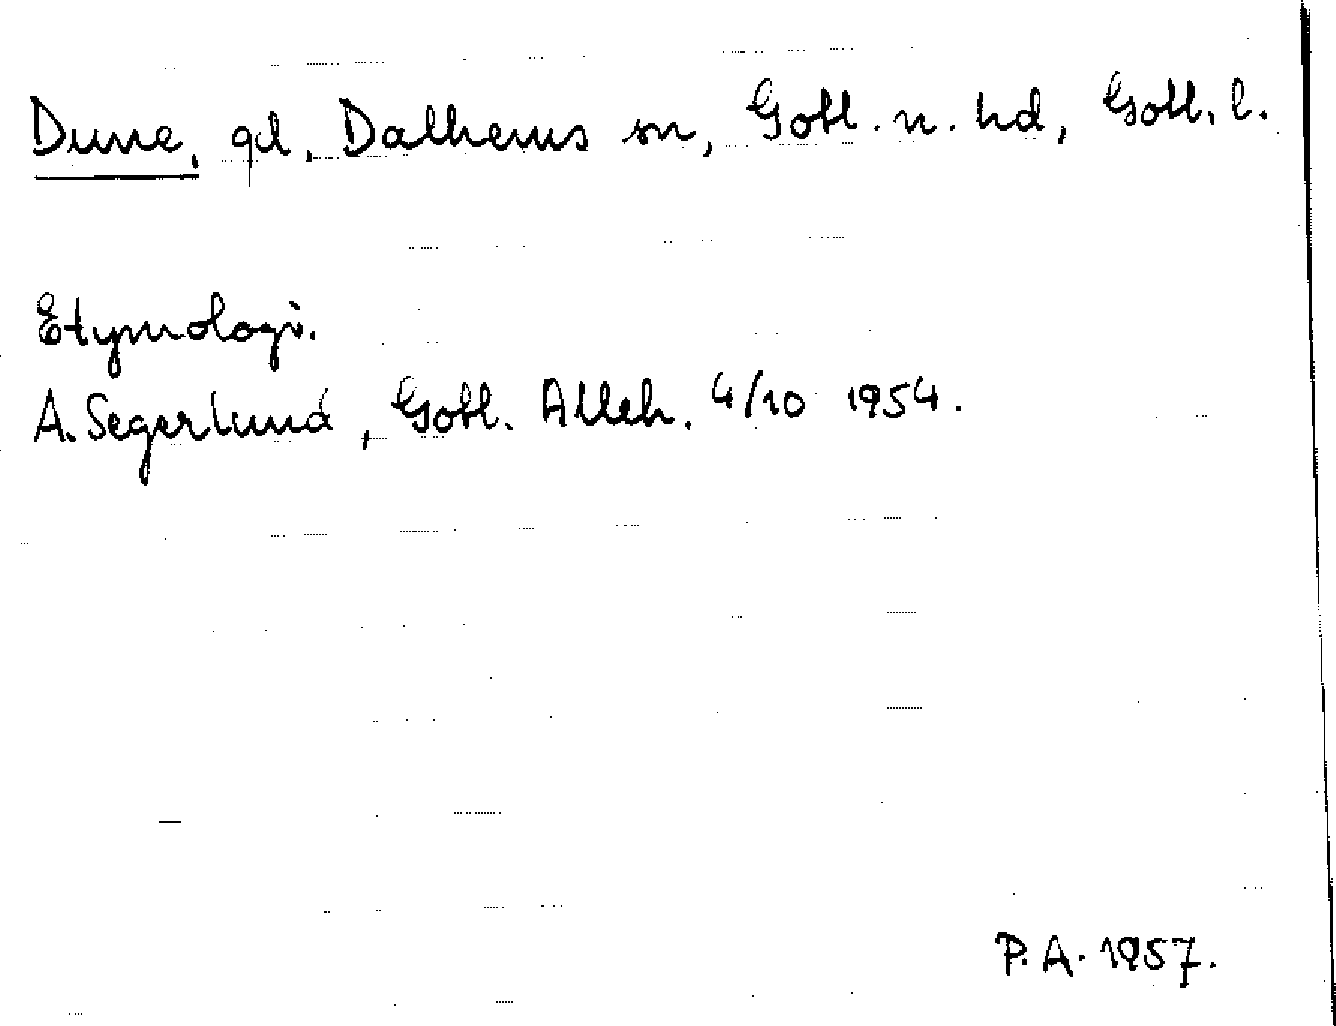 Dune, gd, Dalhems sn, Gotl. n. hd, Gotl. l.
Etymologi.
A. Segerlund, Gotl. Alleh. 4/10 1954.
P. A. 1957.